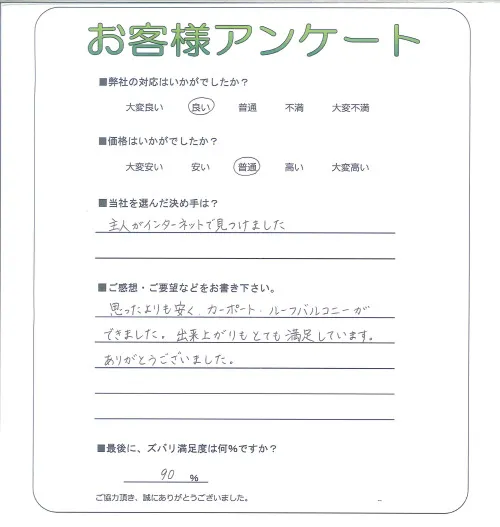 お客様アンケート
■弊社の対応はいかがでしたか？
大変良い 良い 普通 不満 大変不満
■価格はいかがでしたか？
大変安い 安い 普通 高い 大変高い
■当社を選んだ決め手は？
主人がインターネットで見つけました
■ご感想・ご要望などをお書き下さい。
思ったよりも安く、カーポート・ルーフバルコニーが
できました。出来上がりもとても満足しています。
ありがとうございました。
■最後に、ズバリ満足度は何%ですか？
90 %
ご協力頂き、誠にありがとうございました。